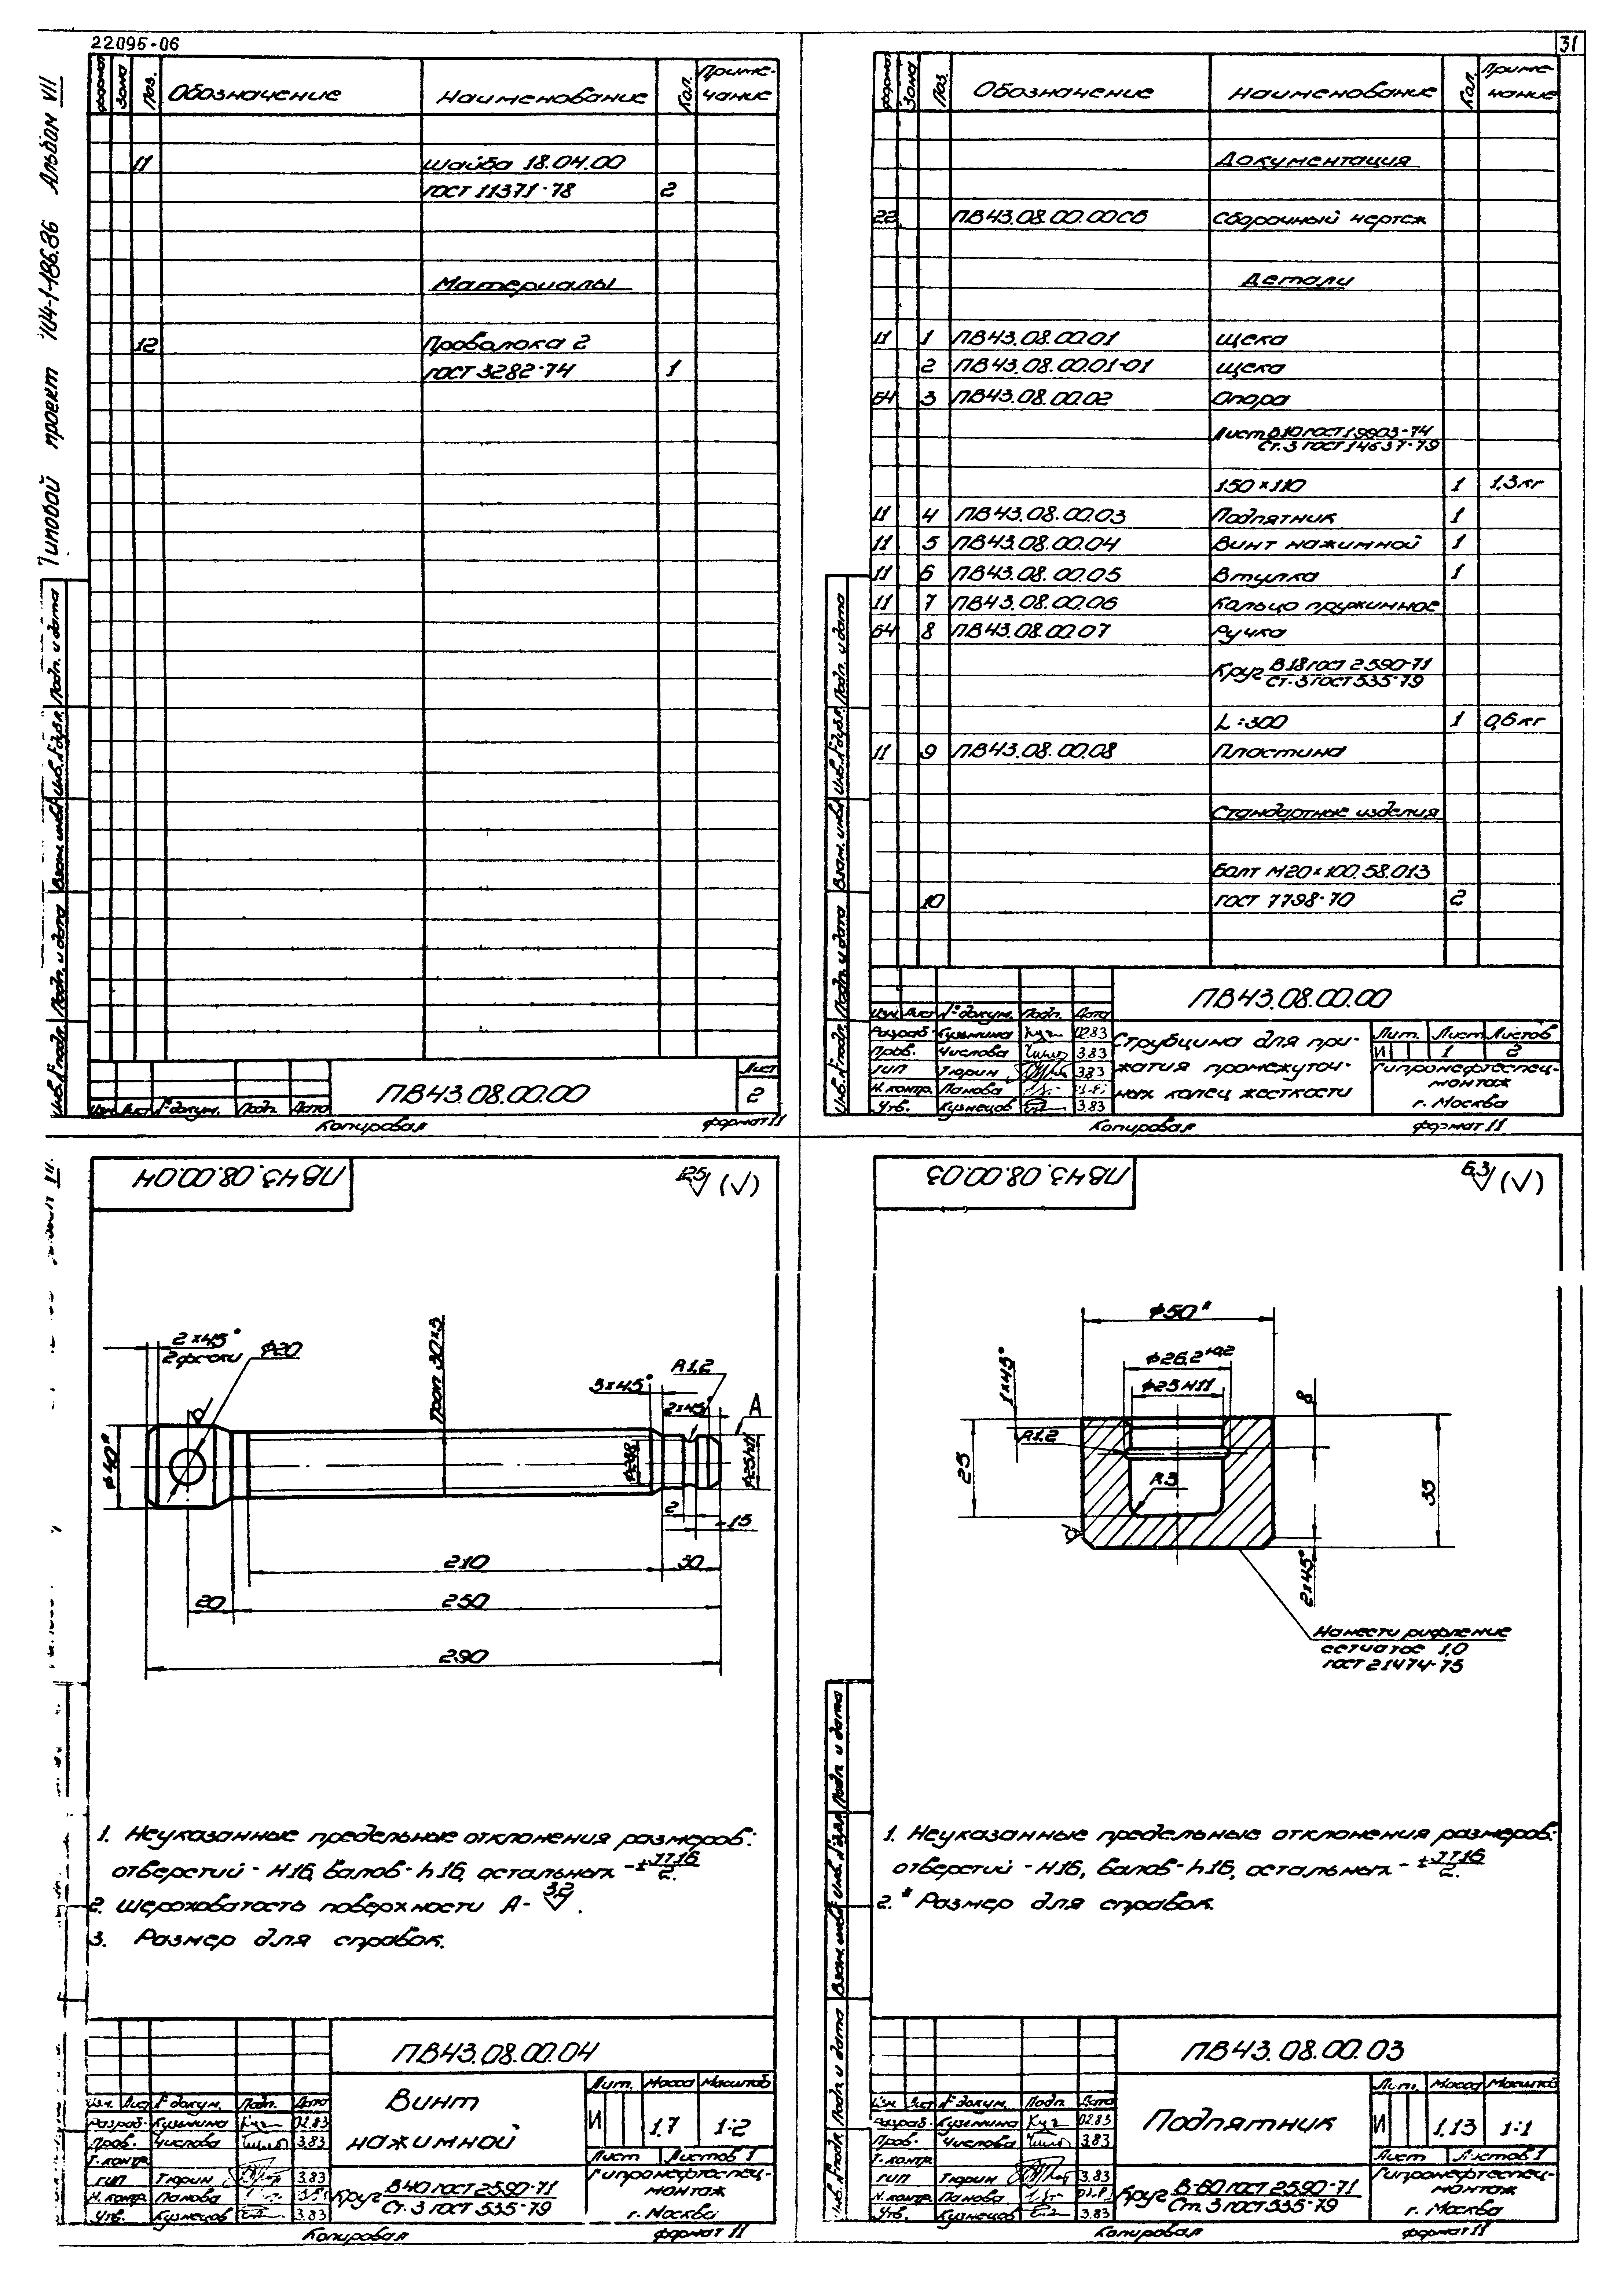 22095-06
31
Типовой проект 704-1-186.86 Альбом VII
Формат Зона Поз. Обозначение Наименование Кол. Приме-чание
11 Шайба 18.04.00
ГОСТ 11371-78 2
Материалы
12 Проволока 2
ГОСТ 3282-74 1
Инв.№ подл. Подп. и дата Взам. инв.№ Инв.№ дубл. Подп. и дата
Изм. Лист № докум. Подп. Дата
ПВ43.08.00.00
Лист
2
Копировал
формат 11
Формат Зона Поз. Обозначение Наименование Кол. Приме-чание
Документация
22 ПВ43.08.00.00СБ Сборочный чертеж
Детали
11 1 ПВ43.08.00.01 Щека
2 ПВ43.08.00.01-01 Щека
БЧ 3 ПВ43.08.00.02 Опора
Лист В10 ГОСТ 19903-74
Ст.3 ГОСТ 14637-79
150×110 1 1,3кг
11 4 ПВ43.08.00.03 Подпятник 1
11 5 ПВ43.08.00.04 Винт нажимной 1
11 6 ПВ43.08.00.05 Втулка 1
11 7 ПВ43.08.00.06 Кольцо пружинное
БЧ 8 ПВ43.08.00.07 Ручка
Круг В18 ГОСТ 2590-71
Ст.3 ГОСТ 535-79
L=300 1 0,6кг
11 9 ПВ43.08.00.08 Пластина
Стандартные изделия
Болт М20×100.58.013
10 ГОСТ 7798-70 2
Инв.№ подл. Подп. и дата Взам. инв.№ Инв.№ дубл. Подп. и дата
ПВ43.08.00.00
Изм. Лист № докум. Подп. Дата
Разраб. Кузьмина 02.83
Пров. Числова 3.83
ГИП Тюрин 3.83
Н. контр. Панова
Утв. Кузнецов 3.83
Струбцина для при-
жатия промежуточ-
ных колец жесткости
Лит. Лист Листов
И 1 2
Гипронефтеспец-
монтаж
г. Москва
Копировал
формат 11
ПВ43.08.00.04
12,5 (√)
2×45°
2 фаски
Ø20
Трап 30×3
R1,2
3×45°
2×45°
А
Ø40*
Ø25h11
2
15
210
30
20
250
290
1. Неуказанные предельные отклонения размеров:
отверстий - Н16, валов - h16, остальных - ± IT16/2.
2. Шероховатость поверхности А - 3,2.
3. Размер для справок.
ПВ43.08.00.04
Изм. Лист № докум. Подп. Дата
Разраб. Кузьмина 02.83
Пров. Числова 3.83
Т. контр.
ГИП Тюрин 3.83
Н. контр. Панова
Утв. Кузнецов 3.83
Винт
нажимной
Лит. Масса Масштаб
И 1.7 1:2
Лист Листов 1
Круг В40 ГОСТ 2590-71
Ст.3 ГОСТ 535-79
Гипронефтеспец-
монтаж
г. Москва
Копировал
формат 11
ПВ43.08.00.03
6,3 (√)
Ø50*
Ø26,2+0,2
Ø25Н11
1×45°
R1,2
R3
8
25
35
2×45°
Нанести рифление
сетчатое 1,0
ГОСТ 21474-75
1. Неуказанные предельные отклонения размеров:
отверстий - Н16, валов - h16, остальных - ± IT16/2.
2.* Размер для справок.
Инв.№ подл. Подп. и дата Взам. инв.№ Инв.№ дубл. Подп. и дата
ПВ43.08.00.03
Изм. Лист № докум. Подп. Дата
Разраб. Кузьмина 02.83
Пров. Числова 3.83
Т. контр.
ГИП Тюрин 3.83
Н. контр. Панова
Утв. Кузнецов 3.83
Подпятник
Лит. Масса Масштаб
И 1.13 1:1
Лист Листов 1
Круг В-60 ГОСТ 2590-71
Ст.3 ГОСТ 535-79
Гипронефтеспец-
монтаж
г. Москва
Копировал
формат 11